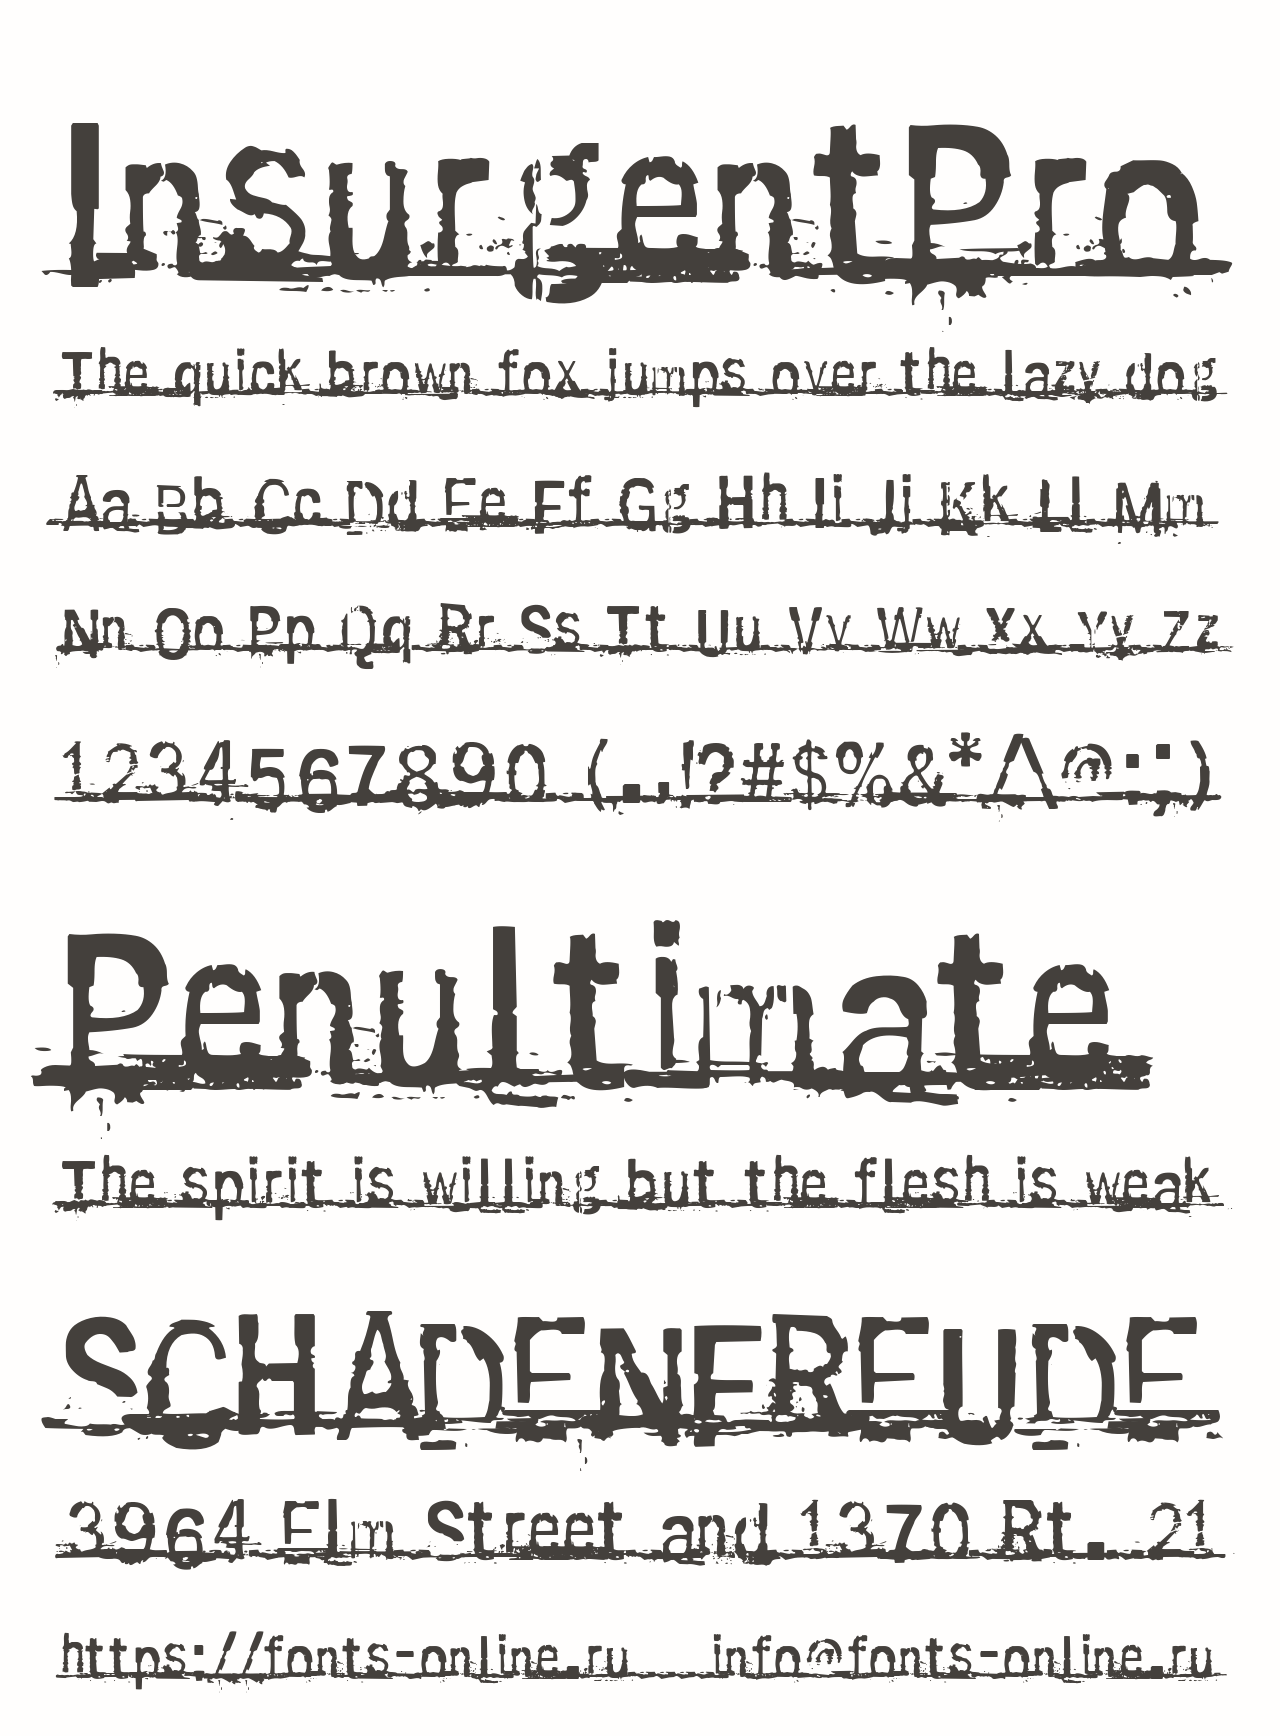 InsurgentPro
The quick brown fox jumps over the lazy dog
Aa Bb Cc Dd Ee Ff Gg Hh Ii Jj Kk Ll Mm
Nn Oo Pp Qq Rr Ss Tt Uu Vv Ww Xx Yy Zz
1234567890 (.,!?#$%&*^@:;)
Penultimate
The spirit is willing but the flesh is weak
SCHADENFREUDE
3964 Elm Street and 1370 Rt. 21
https://fonts-online.ru info@fonts-online.ru